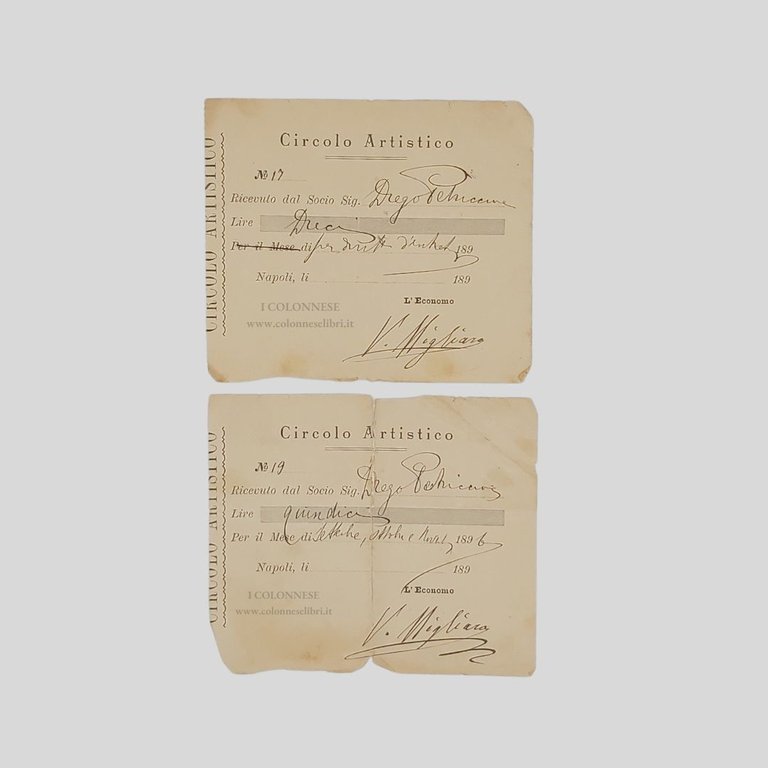 CIRCOLO ARTISTICO
Circolo Artistico
№ 17
Ricevuto dal Socio Sig. Diego Petriccione
Lire Dieci
Per il Mese di per diritti d'entrat 189
Napoli, li 189
L'Economo
I COLONNESE
www.colonneselibri.it
V. Migliaro
CIRCOLO ARTISTICO
Circolo Artistico
№ 19
Ricevuto dal Socio Sig. Diego Petriccione
Lire quindici
Per il Mese di Settembre, Ottobre e Nov 1896
Napoli, li 189
L'Economo
I COLONNESE
www.colonneselibri.it
V. Migliaro